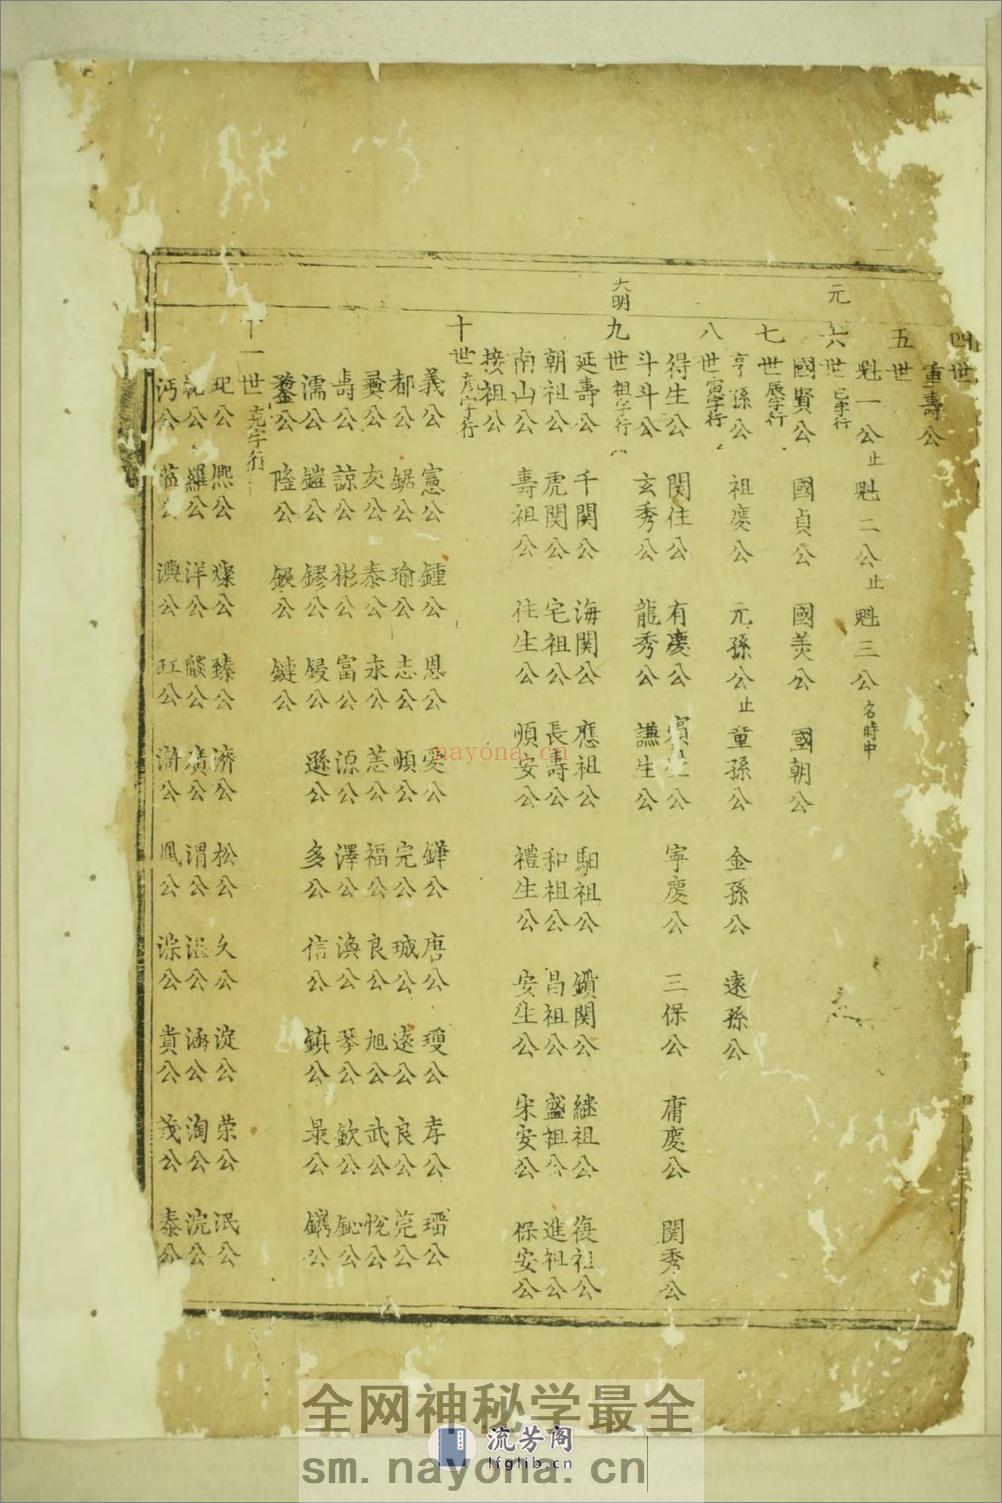 四世
重壽公
五世
魁一公止 魁二公止 魁三公名時中
元
六世巳字行
國賢公 國貞公 國美公 國朝公
七世辰字行
亨孫公 祖慶公 元孫公止 童孫公 金孫公 遠孫公
八世寅字行
得生公 関住公 有慶公 寧慶公 三保公 庸慶公 関秀公
斗斗公 玄秀公 龍秀公 謙生公
大明
九世祖字行
延壽公 千関公 海関公 應祖公 駟祖公 鎖関公 継祖公 復祖公
朝祖公 虎関公 宅祖公 長壽公 和祖公 昌祖公 盛祖公 進祖公
南山公 壽祖公 住生公 順安公 禮生公 安生公 宋安公 保安公
接祖公
十世彦字行
義公 憲公 鍾公 恩公 愛公 鏵公 唐公 瓊公 孝公 璠公
都公 鋸公 瑜公 志公 順公 完公 珹公 遠公 良公 莞公
彝公 灰公 泰公 永公 恙公 福公 良公 旭公 武公 悅公
壽公 諒公 彬公 富公 源公 澤公 渙公 琴公 欽公 鉍公
濡公 鎧公 鏐公 鋟公 遜公 多公 信公 鎮公 杲公 鐫公
鏊公 隆公 鋑公 鏈公
十一世克字行
玘公 熈公 燦公 臻公 濟公 松公 久公 淀公 荣公 泯公
羅公 洋公 燄公 廣公 渭公 涵公 淘公 浣公
沔公 澳公 玒公 滸公 鳳公 淙公 貴公 茂公 泰公
nayona.cn
全网神秘学最全
流芳阁
lfglib.cn
sm.nayona.cn